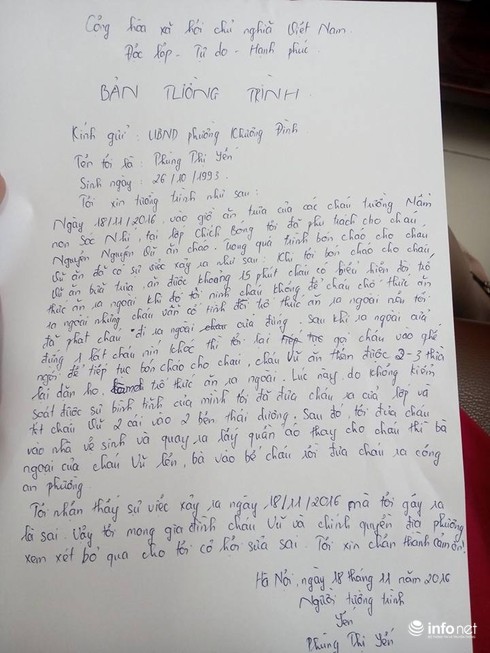 Cộng hòa xã hội chủ nghĩa Việt Nam.
Độc lập - Tự do - Hạnh phúc
BẢN TƯỜNG TRÌNH
Kính gửi: UBND phường Khương Đình
Tên tôi là: Phùng Thị Yến
Sinh ngày: 26/10/1993.
Tôi xin tường trình như sau:
Ngày 18/11/2016 vào giờ ăn trưa của các cháu trường Mầm
non Sóc Nhí, tại lớp Chích Bông tôi đã phụ trách cho cháu
Nguyễn Nguyên Vũ ăn cháo. Trong quá trình bón cháo cho cháu
Vũ ăn đã có sự việc xảy ra như sau: Khi tôi bón cháo cho cháu
Vũ ăn bữa trưa, ăn được khoảng 15 phút cháu có biểu hiện đòi trớ
thức ăn ra ngoài khi đó tôi nịnh cháu không để cháu trớ thức ăn
ra ngoài nhưng cháu vẫn cố tình trớ thức ăn ra ngoài nên tôi
đã phạt cháu đi ra ngoài cửa đứng. Sau khi ra ngoài cửa
đứng 1 lát cháu nín khóc thì tôi lại gọi cháu vào ghế
ngồi để tiếp tục bón cháo cho cháu, cháu Vũ ăn thêm được 2-3 thìa
lại dặn ho, trớ thức ăn ra ngoài. Lúc này do không kiềm
soát được sự bình tĩnh của mình tôi đã đưa cháu ra cửa lớp và
tát cháu Vũ 2 cái vào 2 bên thái dương. Sau đó, tôi đưa cháu
vào nhà vệ sinh và quay ra lấy quần áo thay cho cháu thì bà
ngoại của cháu Vũ lên, bà vào bế cháu rồi đưa cháu ra công
an phường.
Tôi nhận thấy sự việc xảy ra ngày 18/11/2016 mà tôi gây ra
là sai. Vậy tôi mong gia đình cháu Vũ và chính quyền địa phương
xem xét bỏ qua cho tôi cơ hội sửa sai. Tôi xin chân thành cảm ơn!
Hà Nội, ngày 18 tháng 11 năm 2016
Người tường trình
Yến
Phùng Thị Yến
infonet